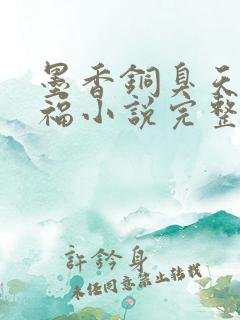 墨香銅臭天
福小說完整
許鈐身
未經同意禁止轉載